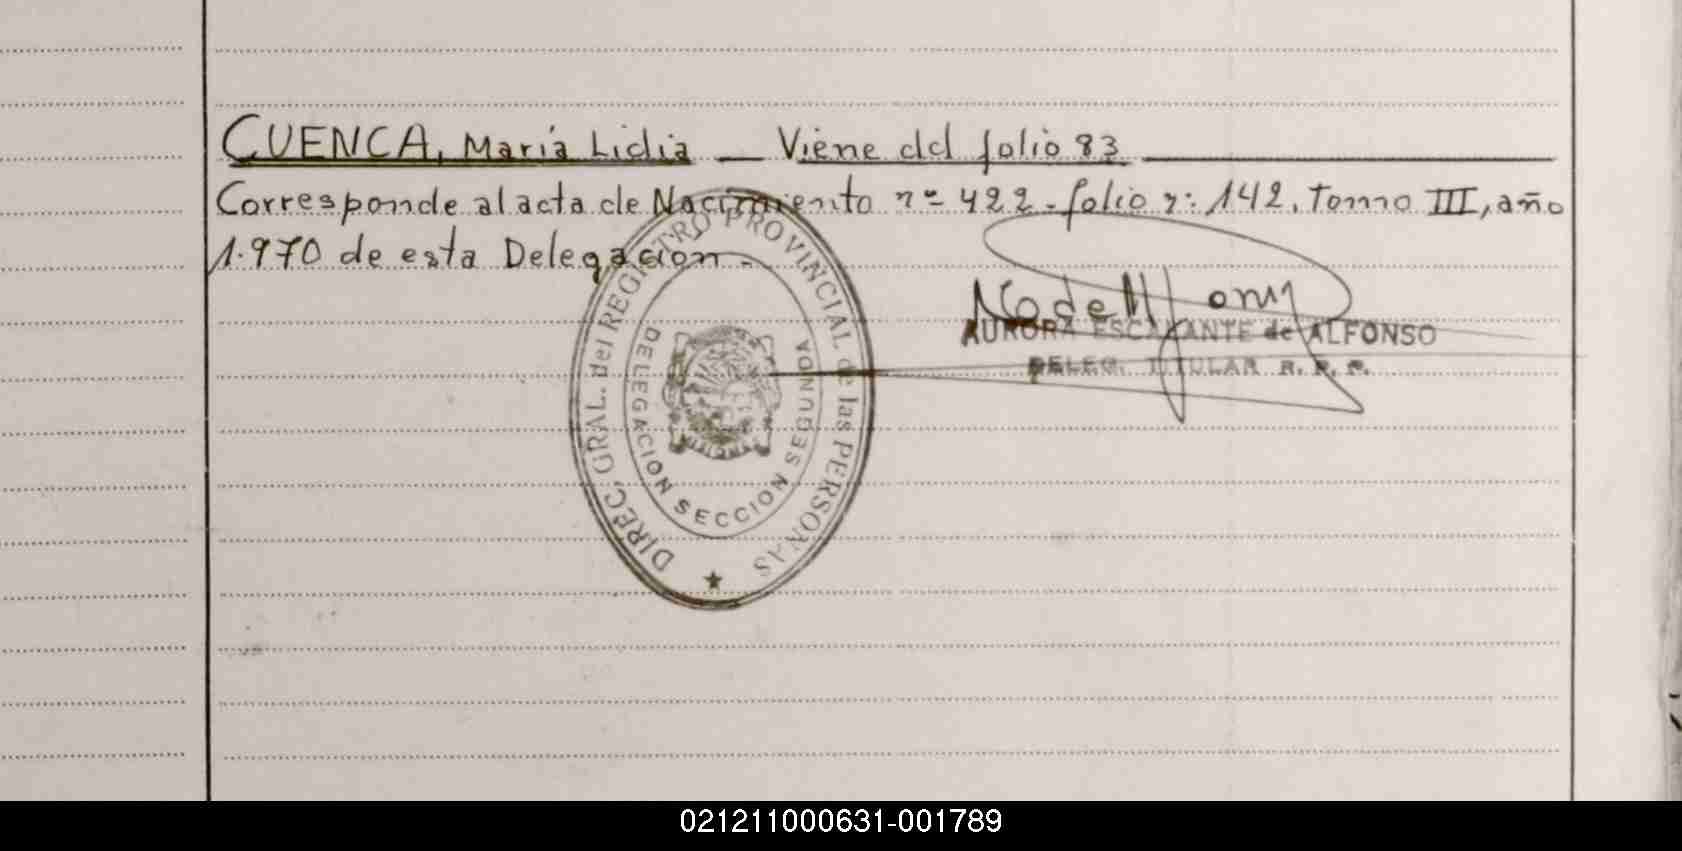 CUENCA, María Lidia — Viene del folio 83
Corresponde al acta de Nacimiento nº 422 - folio nº: 142, Tomo III, año
1.970 de esta Delegación -
DIREC. GRAL. del REGISTRO PROVINCIAL de las PERSONAS
DELEGACION SECCION SEGUNDA
AURORA ESCALANTE de ALFONSO
DELEG. TITULAR R. P. P.
021211000631-001789